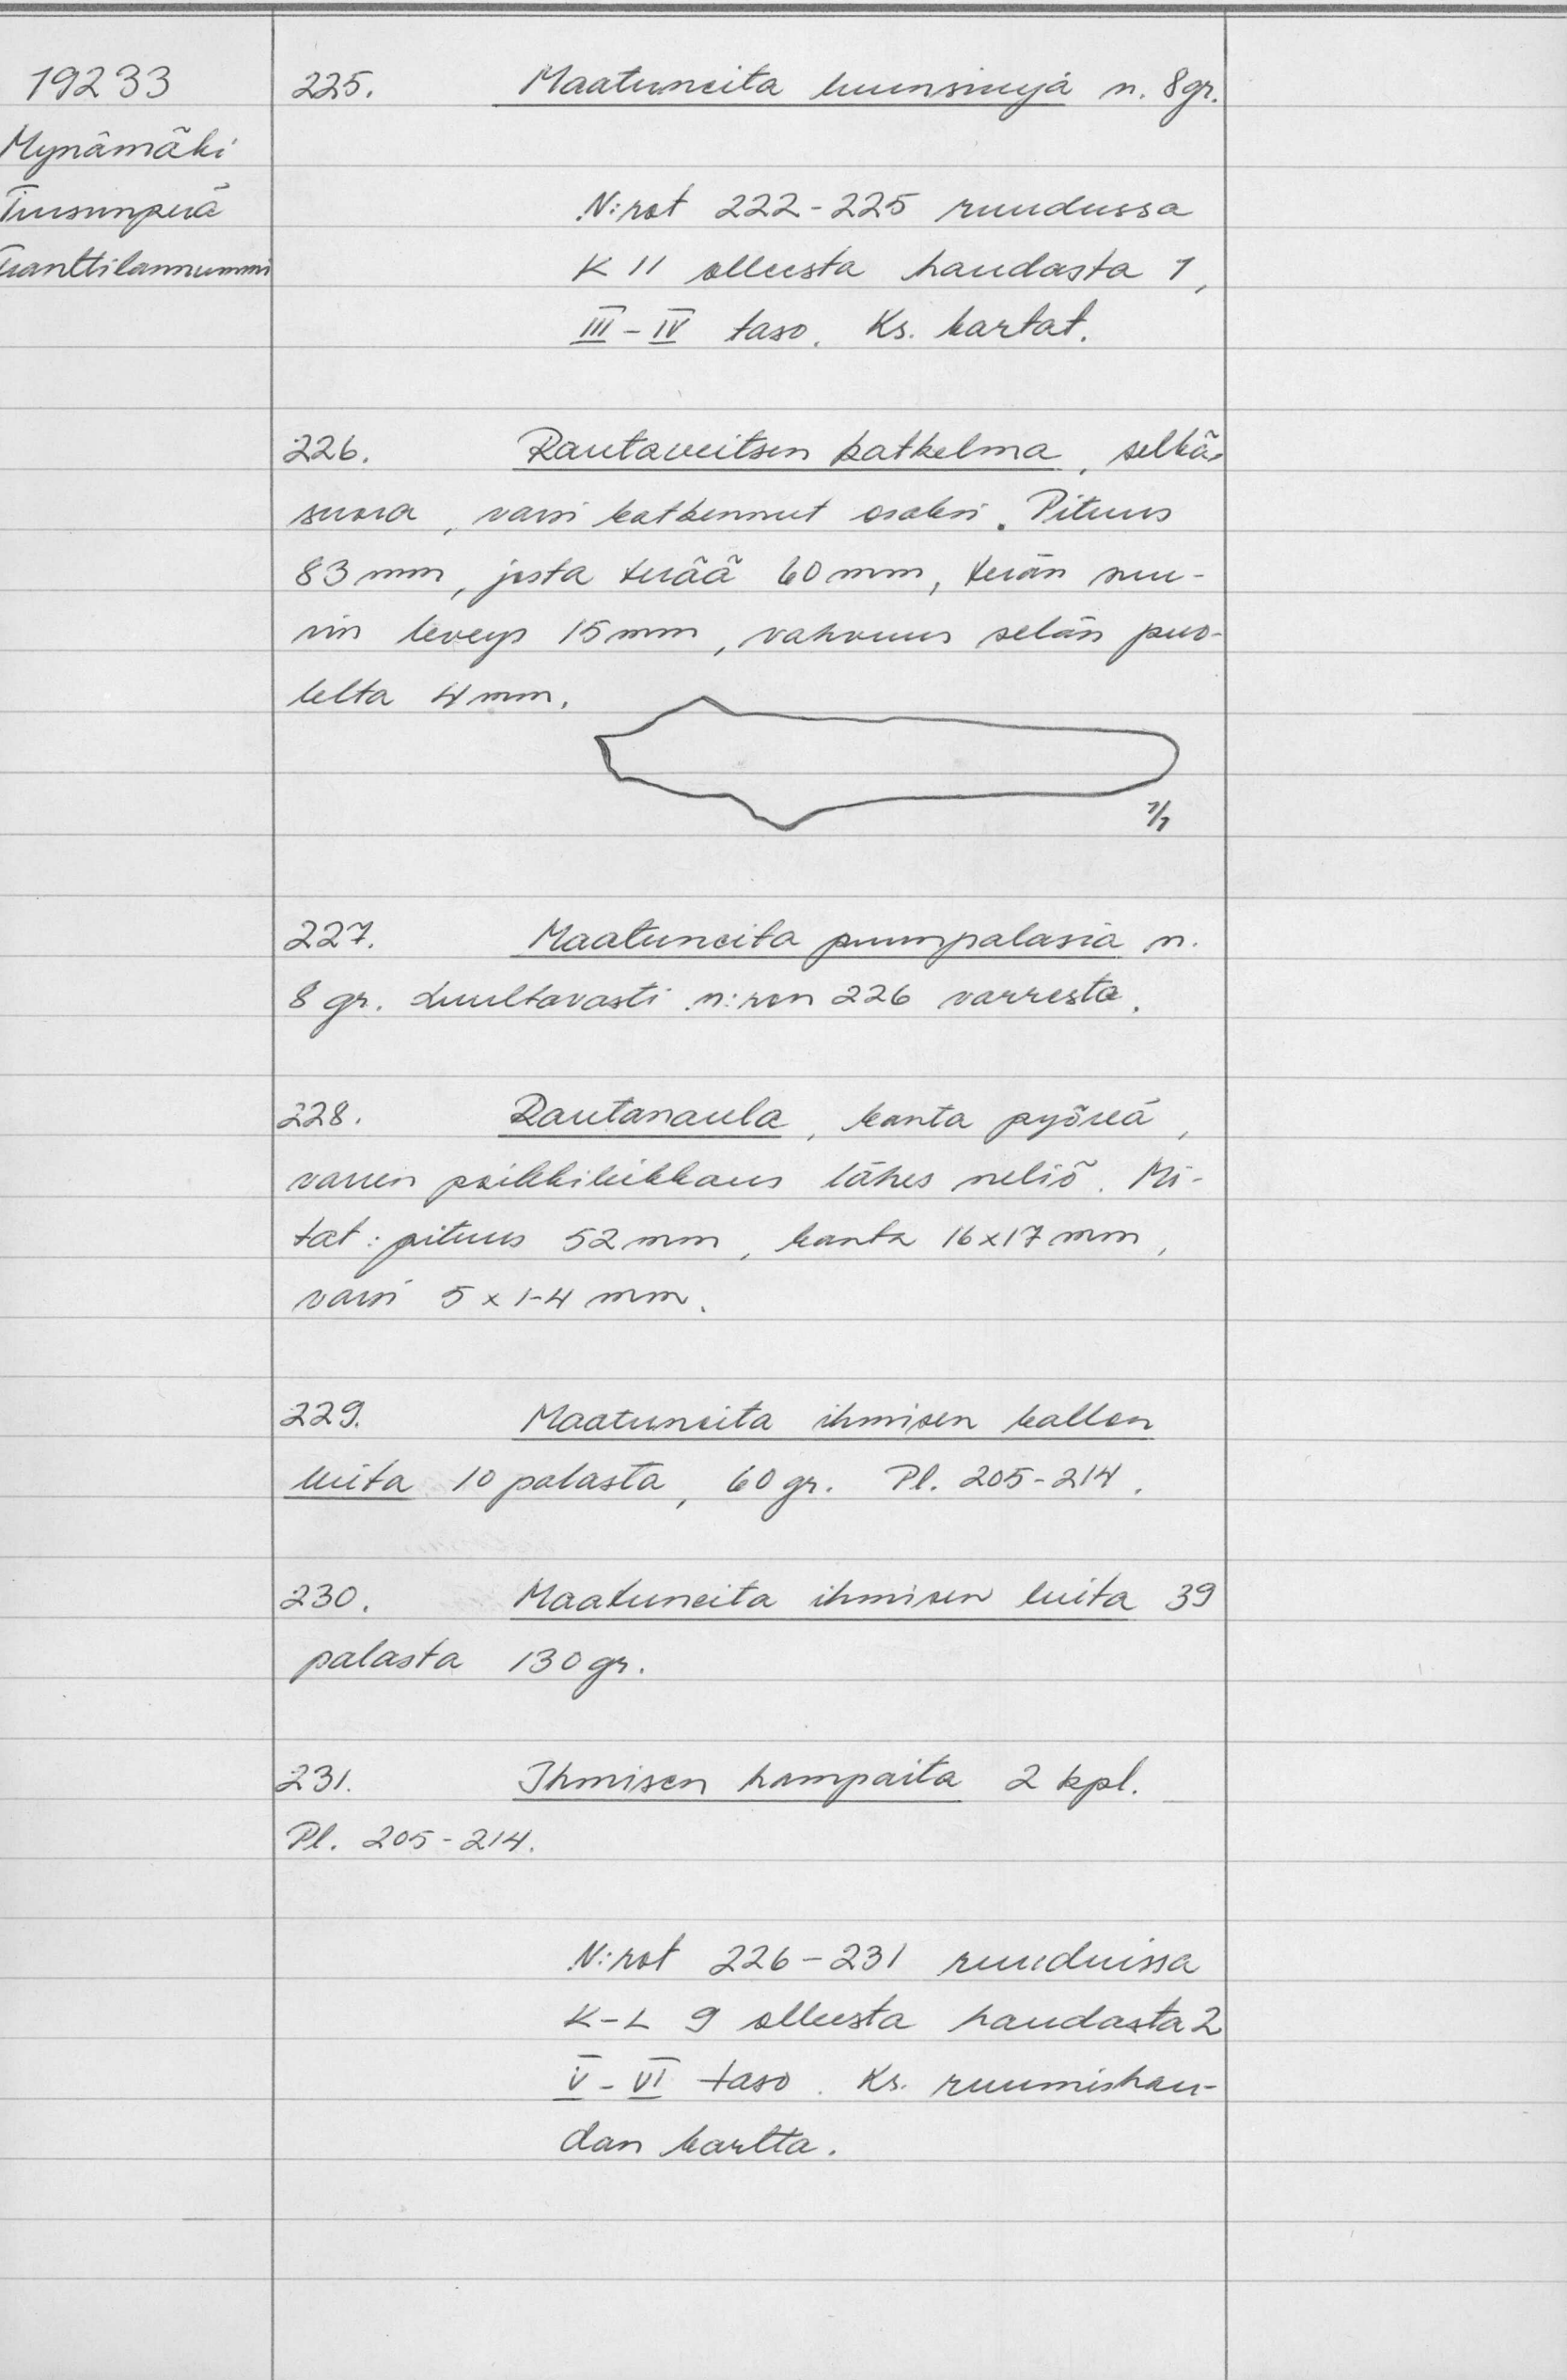 19233
Mynämäki
Tursunperä
Franttilannummi
225. Maatuneita luunsiruja n. 8 gr.
N:rot 222-225 ruudussa
K 11 olleesta haudasta 1,
III-IV taso. Ks. kartat.
226. Rautaveitsen katkelma, selkä
suora, varsi katkennut osaksi. Pituus
83 mm, josta terää 60 mm, terän suu-
rin leveys 15 mm, vahvuus selän puo-
lelta 4 mm.
1/1
227. Maatuneita puunpalasia n.
8 gr. Luultavasti n:ron 226 varresta.
228. Rautanaula, kanta pyöreä,
varren poikkileikkaus lähes neliö. Mi-
tat: pituus 52 mm, kanta 16x17 mm,
varsi 5 x 1-4 mm.
229. Maatuneita ihmisen kallon
luita 10 palasta, 60 gr. Pl. 205-214.
230. Maatuneita ihmisen luita 39
palasta 130 gr.
231. Ihmisen hampaita 2 kpl.
Pl. 205-214.
N:rot 226-231 ruuduissa
K-L 9 olleesta haudasta 2
V-VI taso. Ks. ruumishau-
dan kartta.